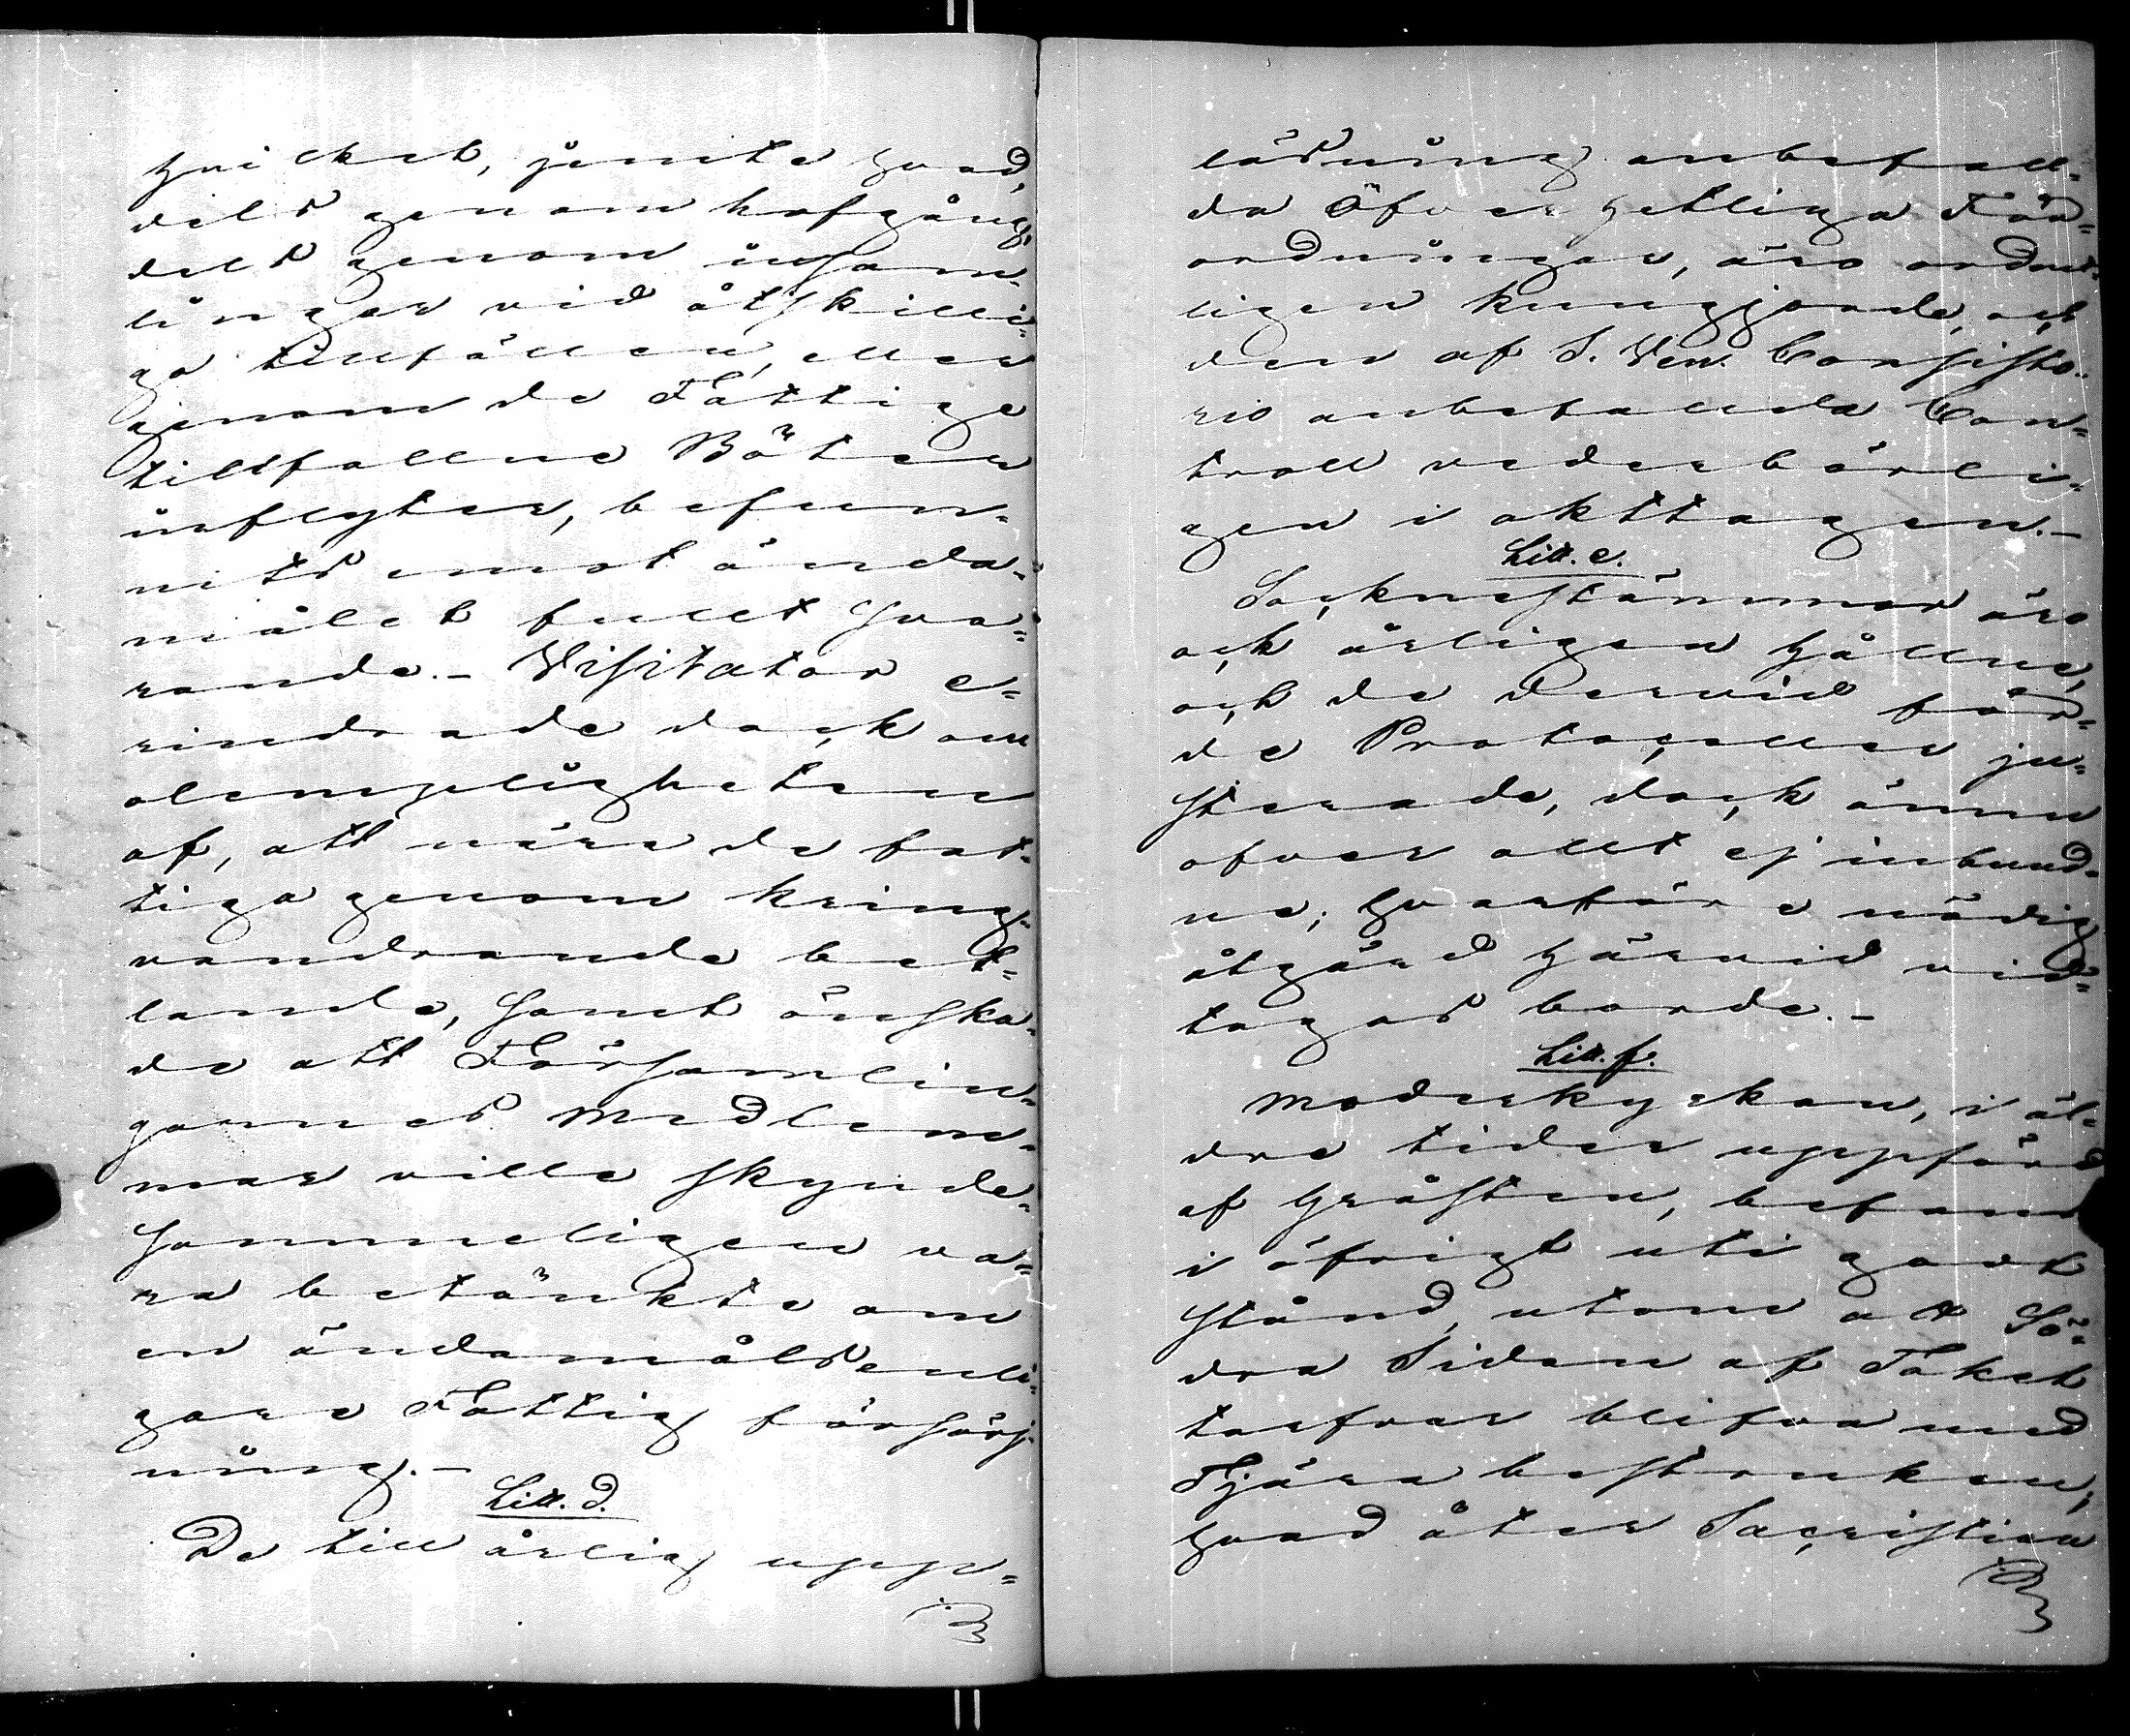 hvilket, jemte hvad,
dels genom hafgång,
dels genom insam-
lingar vid åtskilli-
ga tillfällen, eller
genom de Fattige
tillfallne Böter
inflyter, befun-
nits emot ända-
målet fullt sva-
rande. – Visitator e-
rindrade dock om
olämpligheten
af, att nära de fat-
tiga genom kring-
vandrande bet-
lande, samt önska-
de att Församlin-
garnes medlem-
mar ville skynde-
sammeligen va-
ra betänkte om
en ändamålsenli-
gare Fattig försörj-
ning. –
Litt. d.
De till årlig upp-
läsning anbefall-
da Öfverhetliga För-
ordningar, äro ordent-
ligen kungjorde, och
den af S. Ven. Consisto-
rio anbefallda Con-
troll vederbörli-
gen i akttagen. –
Litt. e.
Socknestämmor äro
ock årligen hållne,
och de dervid för-
de Protocoller ju-
sterade, dock ännu
ofver allt ej inbund-
ne; hvarföre nödig
åtgärd härvid vid-
tagas borde. –
Litt. f.
Moderkyrkan, i äl-
dre tider uppförd
af Gråsten, befans
i öfrigt uti godt
stånd, utom att Sö-
dra Sidan af Taket
tarfvar blifva med
Tjära bestruken;
hvad åter Sacristian